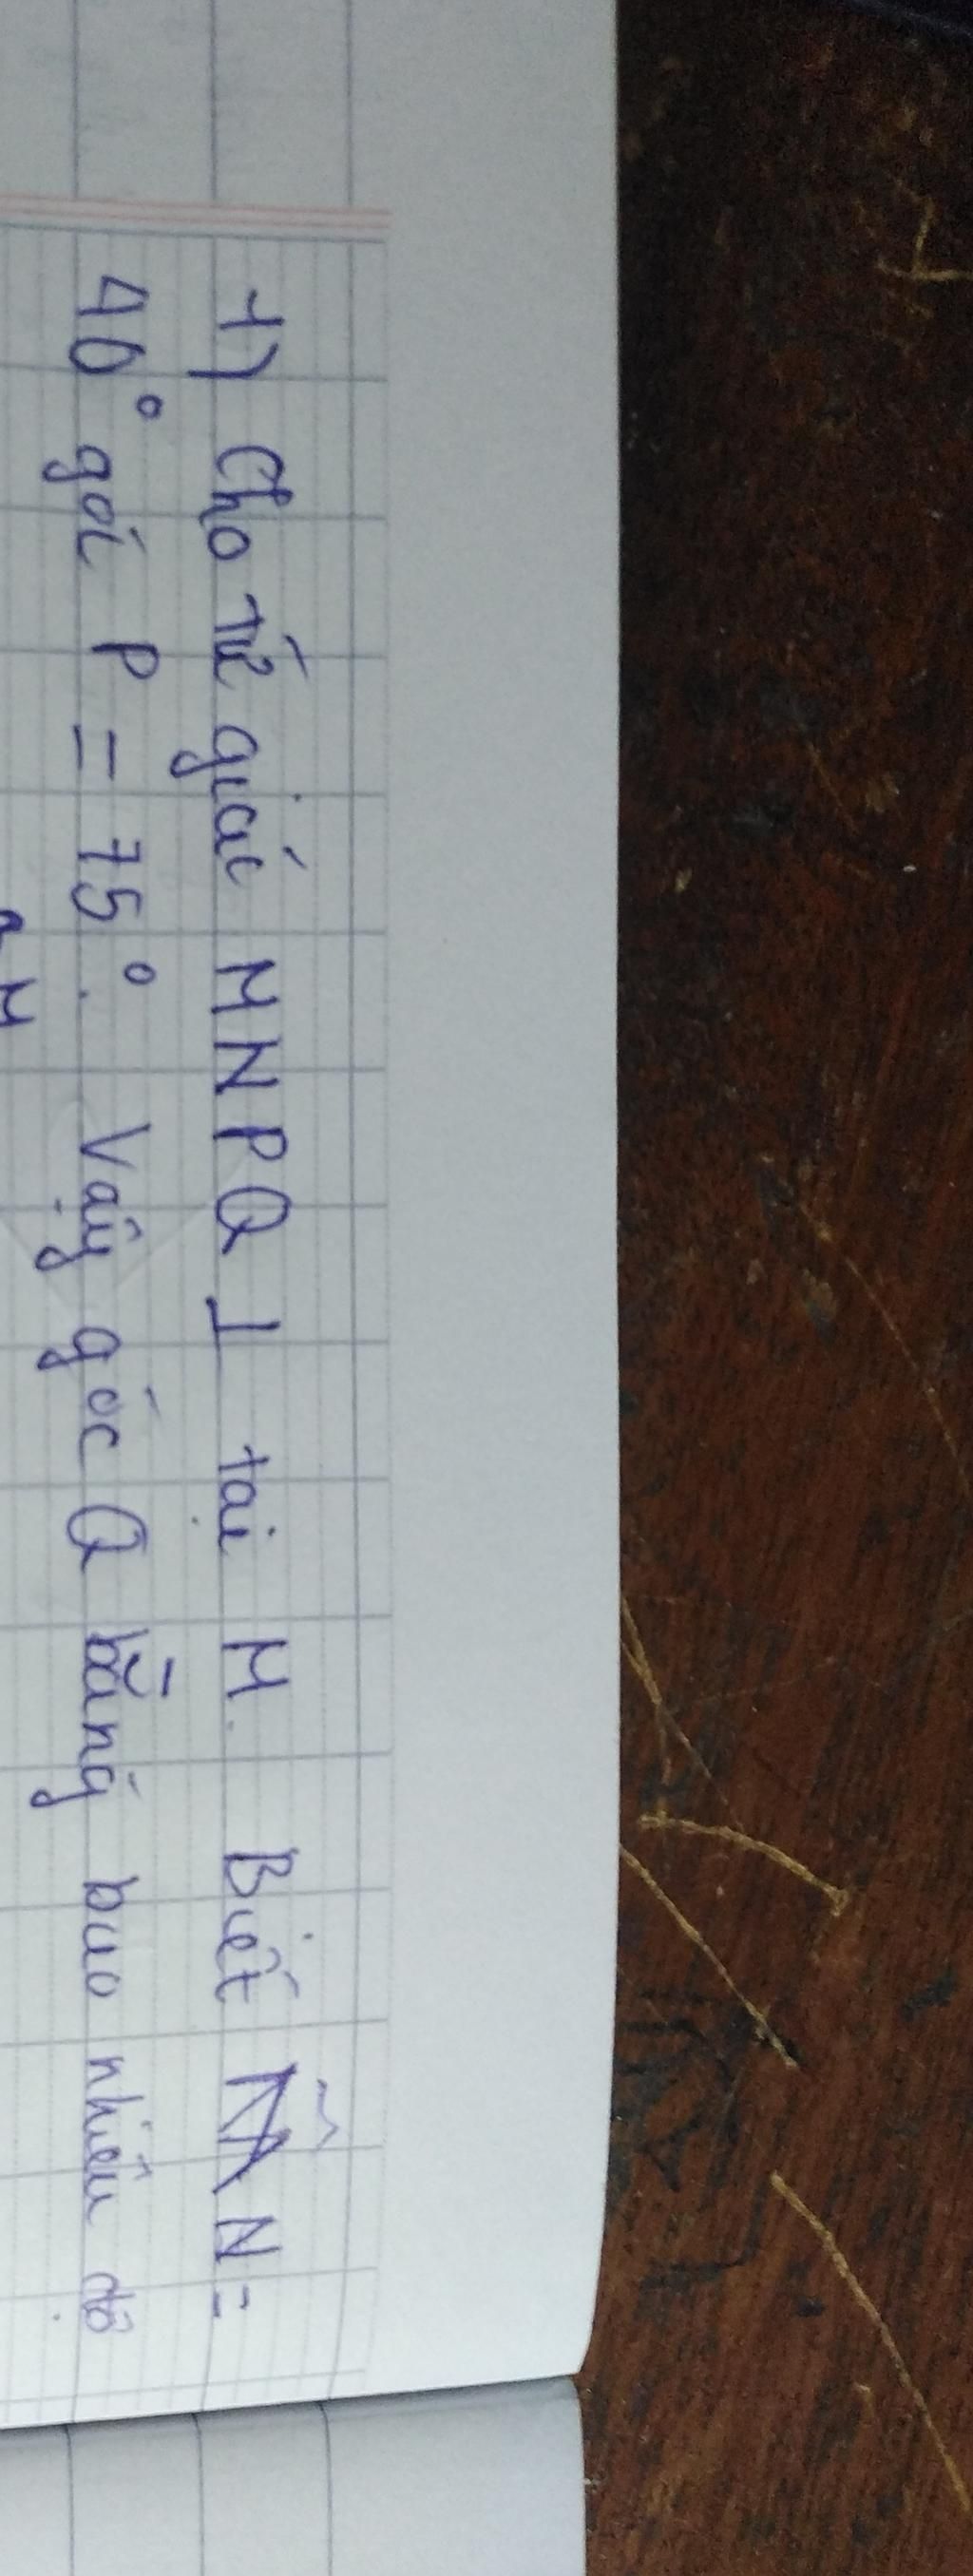 1) Cho tứ giác MNPQ ⊥ tại M. Biết N =
40° gói P = 75°. Vậy góc Q bằng bao nhiêu độ
M